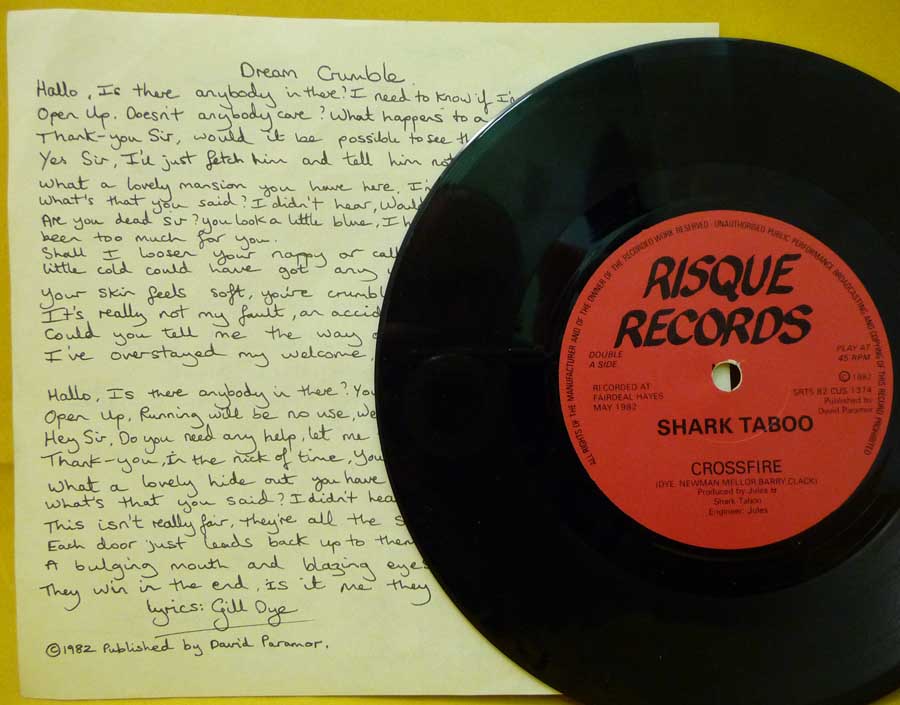 Dream Crumble
Hallo, Is there anybody in there? I need to know if I'm
Open Up. Doesn't anybody care? What happens to a
Thank-you Sir, would it be possible to see
Yes Sir, I'll just fetch him and tell him not
What a lovely mansion you have here, I'm
What's that you said? I didn't hear,
Are you dead Sir? you look a little blue, I
been too much for you.
Shall I loosen your nappy or call
little cold could have got any
Your skin feels soft, you're
It's really not my fault, an
Could you tell me the way
I've overstayed my welcome,
Hallo, Is there anybody in there?
Open Up, Running will be no use,
Hey Sir, Do you need any help, let me
Thank-you, in the nick of time,
What a lovely hide out you have
What's that you said? I didn't
This isn't really fair, They're all the
Each door just leads back up to
A bulging mouth and blazing eyes
They win in the end, is it me they
lyrics: Gill Dye
©1982 Published by David Paramor.
ALL RIGHTS OF THE MANUFACTURER AND OF THE OWNER OF THE RECORDED WORK RESERVED - UNAUTHORISED PUBLIC PERFORMANCE BROADCASTING AND COPYING OF THIS RECORD PROHIBITED
RISQUE
RECORDS
DOUBLE
A SIDE
PLAY AT
45 RPM
RECORDED AT
FAIRDEAL HAYES
MAY 1982
© 1982
SRTS 82 CUS 1374
Published by
David Paramor
SHARK TABOO
CROSSFIRE
(DYE, NEWMAN MELLOR, BARRY, CLACK)
Produced by Jules &
Shark Taboo
Engineer: Jules